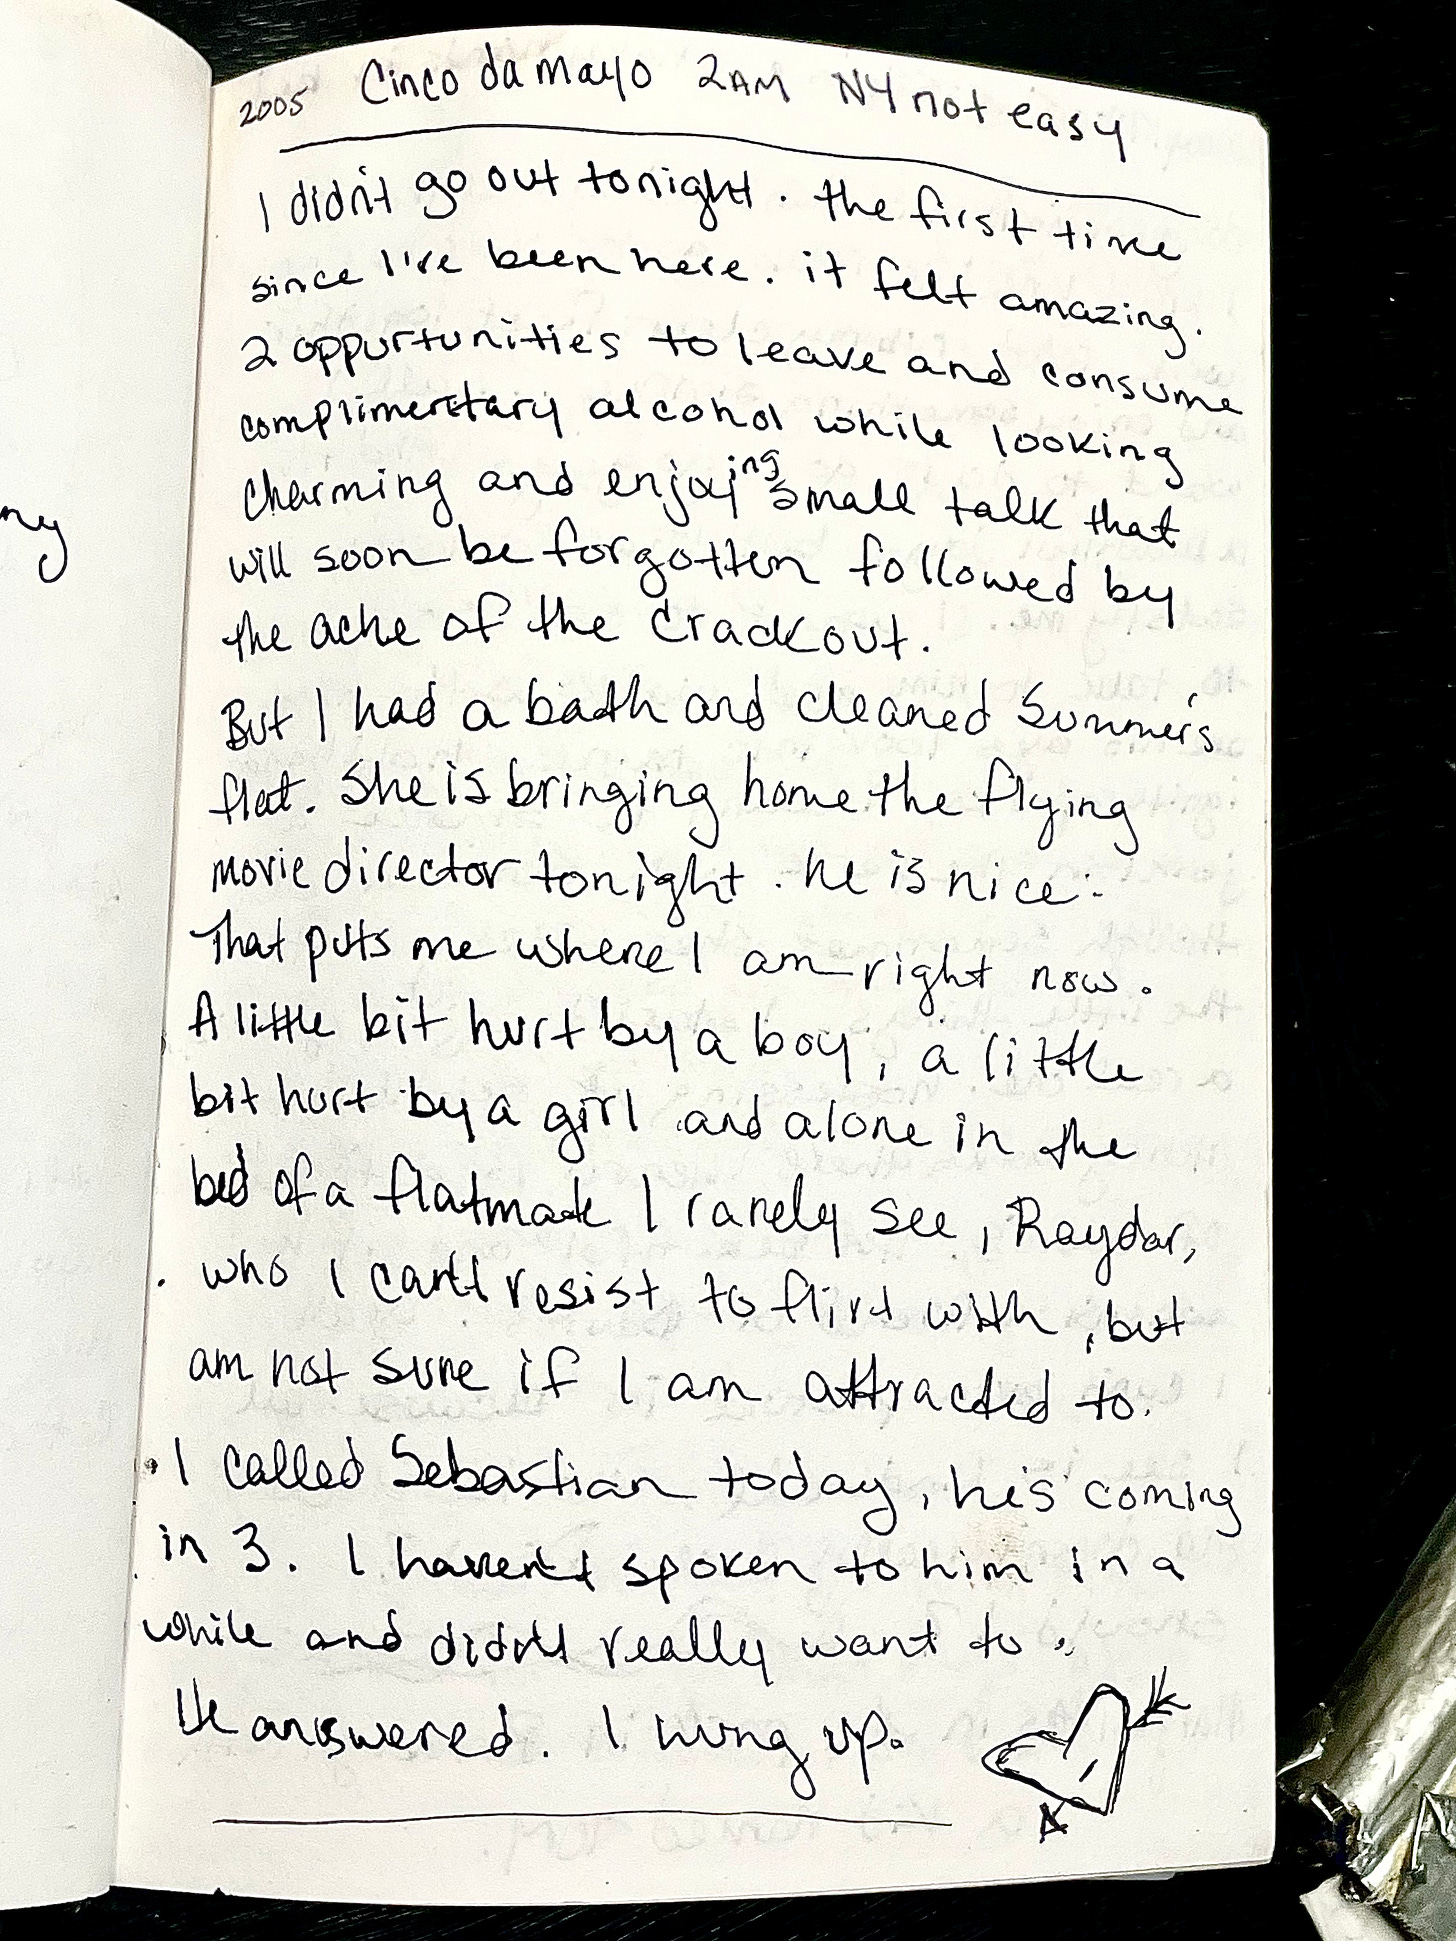 ny
2005 Cinco da mayo 2AM NY not easy
I didn't go out tonight. the first time
since I've been here. it felt amazing.
2 oppurtunities to leave and consume
complimentary alcohol while looking
charming and enjoying small talk that
will soon be forgotten followed by
the ache of the crackout.
But I had a bath and cleaned Summer's
flat. She is bringing home the flying
movie director tonight. he is nice.
That puts me where I am right now.
A little bit hurt by a boy, a little
bit hurt by a girl and alone in the
bed of a flatmate I rarely see, Raydar,
who I can't resist to flirt with, but
am not sure if I am attracted to.
I called Sebastian today, he's coming
in 3. I haven't spoken to him in a
while and didn't really want to.
He answered. I hung up.